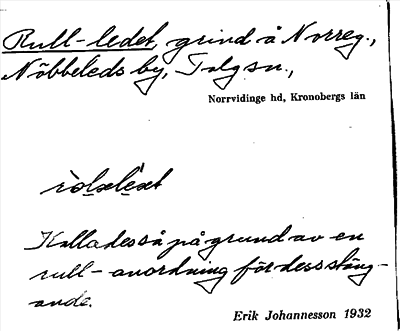 Rull-ledet, grind å Norreg.,
Nöbbeleds by, Tolgsn.,
Norrvidinge hd, Kronobergs län
Kallades så på grund av en
rull-anordning för dess stäng-
ande.
Erik Johannesson 1932